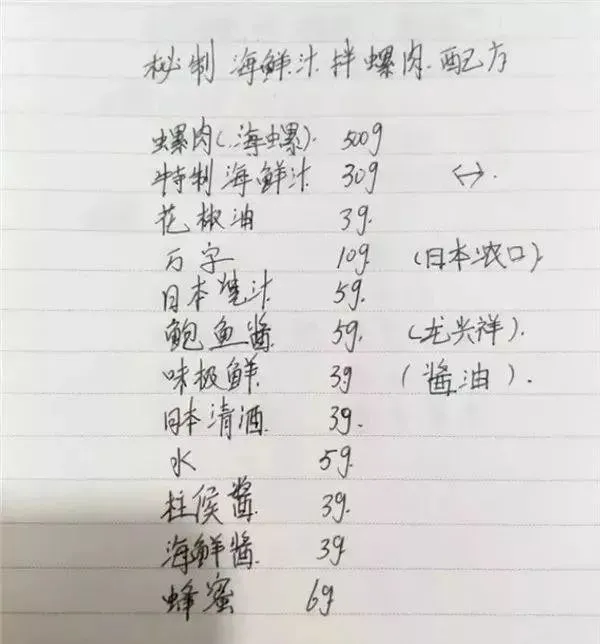 秘制海鲜汁拌螺肉.配方
螺肉(海螺). 500g
特制海鲜汁 30g ↔.
花椒油 3g.
万字 10g. (日本浓口).
日本烧汁 5g.
鲍鱼酱 5g. (龙兴祥).
味极鲜 3g (酱油).
日本清酒. 3g.
水 5g.
柱侯酱 3g.
海鲜酱 3g
蜂蜜 6g